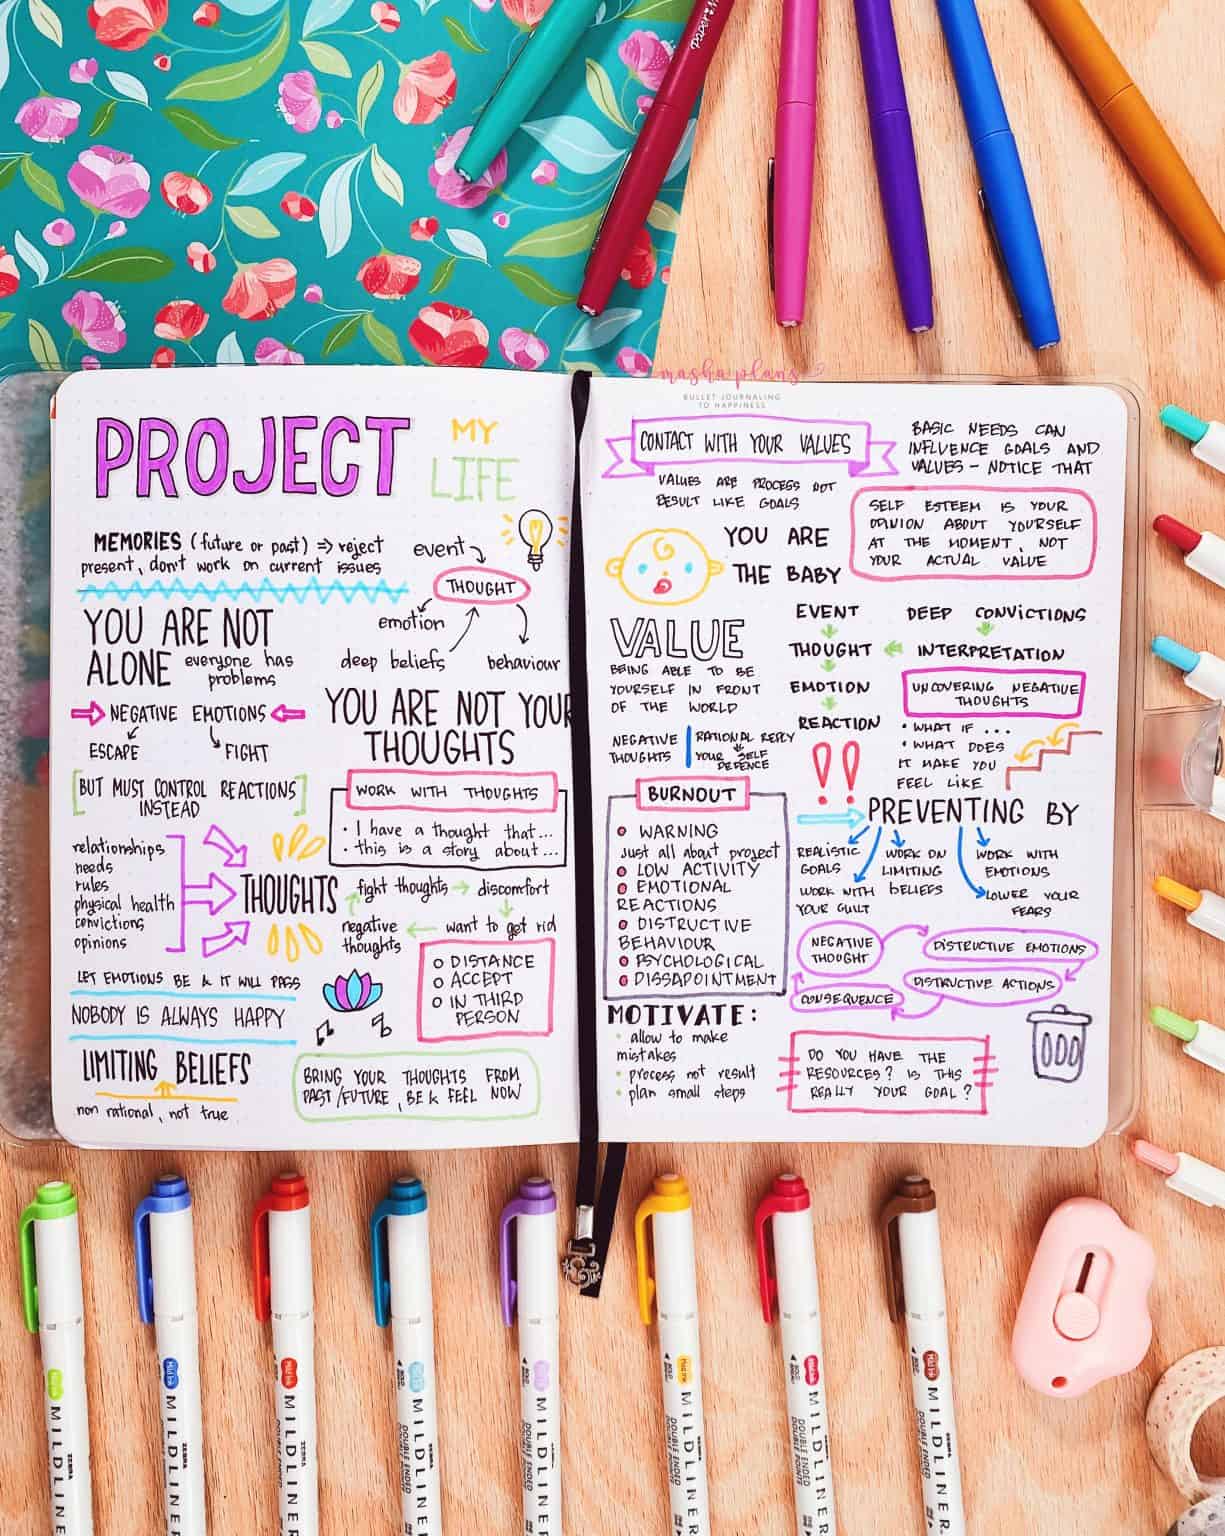 Paper Mate
masha plans
BULLET JOURNALING
TO HAPPINESS
PROJECT
MY
LIFE
MEMORIES (future or past) => reject
present, don't work on current issues
event
THOUGHT
emotion
deep beliefs
behaviour
YOU ARE NOT
ALONE everyone has
problems
NEGATIVE EMOTIONS
ESCAPE
FIGHT
BUT MUST CONTROL REACTIONS
INSTEAD
YOU ARE NOT YOUR
THOUGHTS
WORK WITH THOUGHTS
• I have a thought that...
• this is a story about...
relationships
needs
rules
physical health
convictions
opinions
THOUGHTS
fight thoughts → discomfort
negative
thoughts ← want to get rid
LET EMOTIONS BE & IT WILL PASS
NOBODY IS ALWAYS HAPPY
DISTANCE
ACCEPT
IN THIRD
PERSON
LIMITING BELIEFS
non rational, not true
BRING YOUR THOUGHTS FROM
PAST/FUTURE, BE & FEEL NOW
CONTACT WITH YOUR VALUES
VALUES ARE PROCESS NOT
RESULT LIKE GOALS
BASIC NEEDS CAN
INFLUENCE GOALS AND
VALUES - NOTICE THAT
SELF ESTEEM IS YOUR
OPINION ABOUT YOURSELF
AT THE MOMENT, NOT
YOUR ACTUAL VALUE
YOU ARE
THE BABY
VALUE
BEING ABLE TO BE
YOURSELF IN FRONT
OF THE WORLD
EVENT
THOUGHT
EMOTION
REACTION
DEEP CONVICTIONS
INTERPRETATION
UNCOVERING NEGATIVE
THOUGHTS
• WHAT IF ...
• WHAT DOES
IT MAKE YOU
FEEL LIKE
NEGATIVE
THOUGHTS
RATIONAL REPLY
YOUR SELF
DEFENCE
!!
BURNOUT
WARNING
Just all about project
LOW ACTIVITY
EMOTIONAL
REACTIONS
DISTRUCTIVE
BEHAVIOUR
PSYCHOLOGICAL
DISSAPOINTMENT
PREVENTING BY
REALISTIC
GOALS
WORK WITH
YOUR GUILT
WORK ON
LIMITING
BELIEFS
WORK WITH
EMOTIONS
LOWER YOUR
FEARS
NEGATIVE
THOUGHT
DISTRUCTIVE EMOTIONS
DISTRUCTIVE ACTIONS
CONSEQUENCE
MOTIVATE:
• allow to make
mistakes
• process not result
• plan small steps
DO YOU HAVE THE
RESOURCES? IS THIS
REALLY YOUR GOAL?
Mild Ink
ZEBRA
MILDLINER
Mild Ink
ZEBRA
MILDLINER
Mild Ink
ZEBRA
MILDLINER
DOUBLE ENDED
ZEBRA
MILDLINER
DOUBLE ENDED
ZEBRA
MILDLINER
DOUBLE ENDED
Mild Ink
ZEBRA
MILDLINER
DOUBLE ENDED
Mild Ink
ZEBRA
MILDLINER
DOUBLE ENDED
Mild Ink
ZEBRA
MILDLINER
DOUBLE ENDED